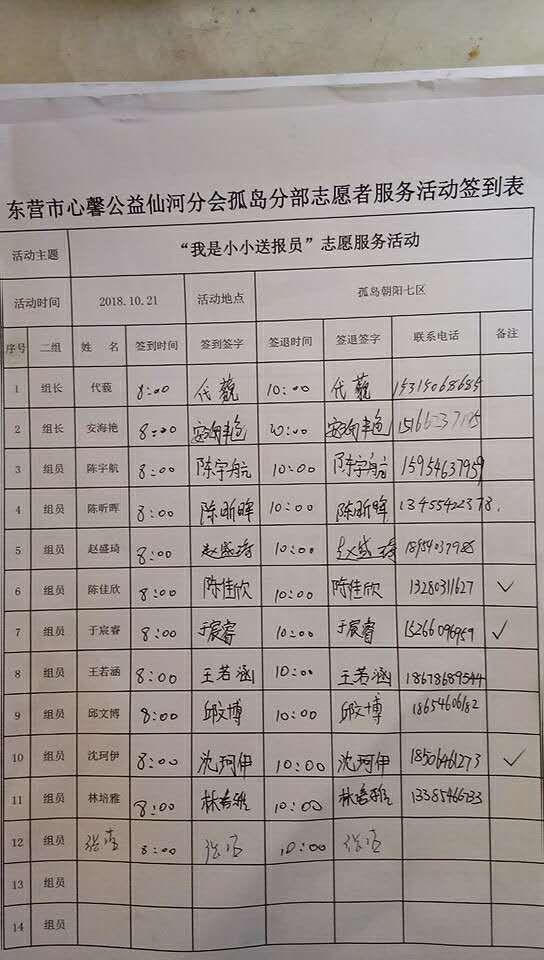 东营市心馨公益仙河分会孤岛分部志愿者服务活动签到表
活动主题 “我是小小送报员”志愿服务活动
活动时间 2018.10.21 活动地点 孤岛朝阳七区
序号 二组 姓 名 签到时间 签到签字 签退时间 签退签字 联系电话 备注
1 组长 代藐 8:00 代藐 10:00 代藐 15315068685
2 组长 安海艳 8:00 安海艳 10:00 安海艳
3 组员 陈宇航 8:00 陈宇航 10:00 陈宇航 15954637959
4 组员 陈昕晖 8:00 陈昕晖 10:00 陈昕晖 13455422378.
5 组员 赵盛琦 8:00 赵盛琦 10:00 赵盛琦 18954037985
6 组员 陈佳欣 8:00 陈佳欣 10:00 陈佳欣 13280311627 ✓
7 组员 于宸睿 8:00 于宸睿 10:00 于宸睿 15266096959 ✓
8 组员 王若涵 8:00 王若涵 10:00 王若涵 18678689544
9 组员 邱文博 8:00 邱文博 10:00 邱文博 18654606182
10 组员 沈珂伊 8:00 沈珂伊 10:00 沈珂伊 18506461273 ✓
11 组员 林培雅 8:00 林培雅 10:00 林培雅 13385466233
12 组员 8:00 10:00
13 组员
14 组员